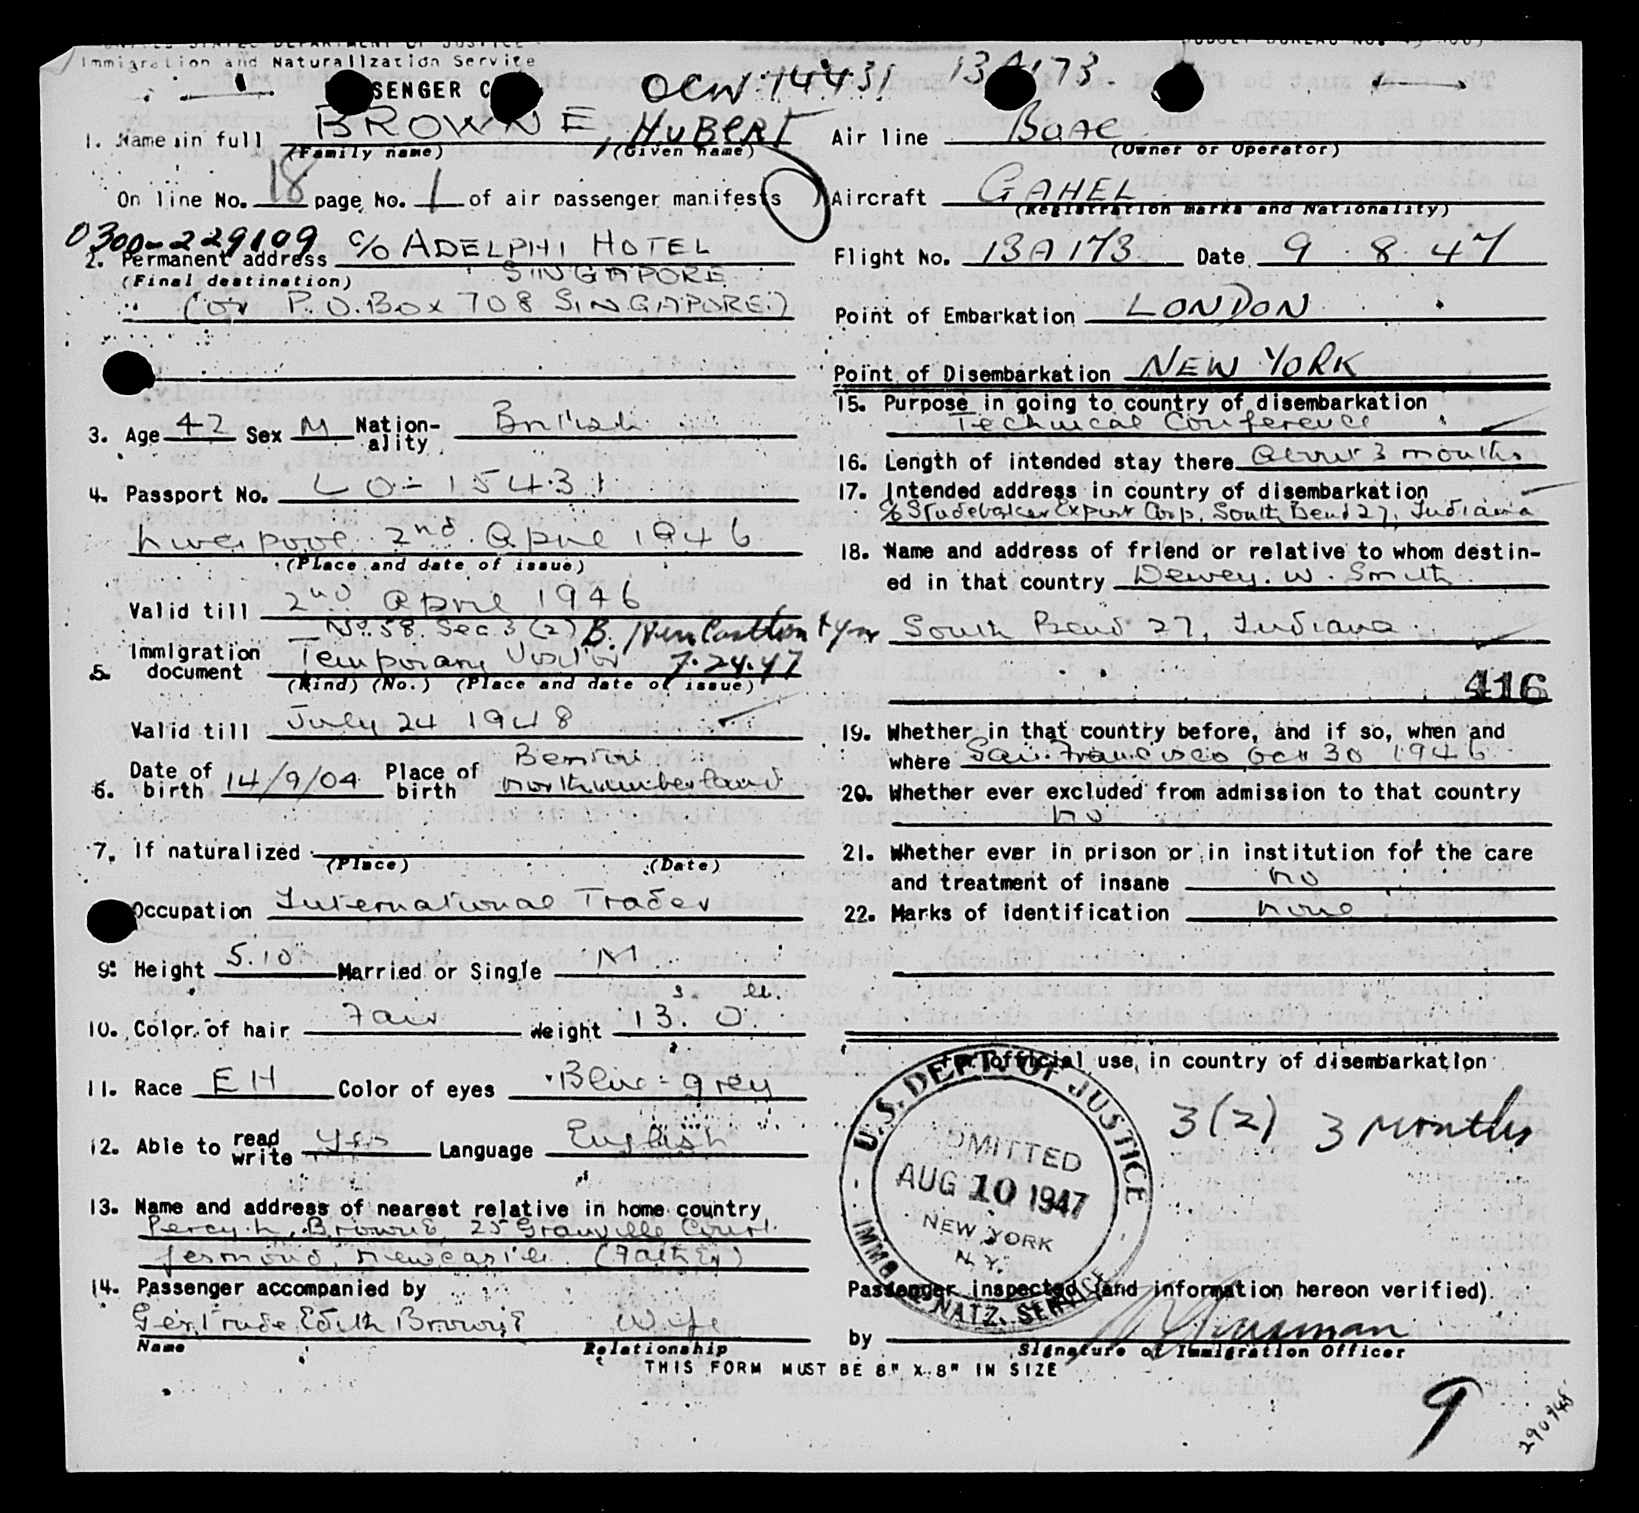 Immigration and Naturalization Service
OCW 14431 13A173
1. Name in full BROWNE, HUBERT
(Family name) (Given name)
On line No. 18 page No. 1 of air passenger manifests
0300-229109
2. Permanent address c/o ADELPHI HOTEL
(Final destination) SINGAPORE
(or P.O. Box 708 SINGAPORE.)
3. Age 42 Sex M Nation-ality British
4. Passport No. LO-15431
Liverpool 2nd April 1946
(Place and date of issue)
Valid till 2nd April 1946
No. 58. Sec 3 (2)
5. Immigration document Temporary Visitor 7.24.47
(Kind) (No.) (Place and date of issue)
Valid till July 24 1948
6. Date of birth 14/9/04 Place of birth Benton Northumberland
7. If naturalized
(Place) (Date)
Occupation International Trader
9. Height 5.10 Married or Single M
10. Color of hair Fair Weight 13. 0.
11. Race EH Color of eyes Blue-grey
12. Able to read write Yes Language English
13. Name and address of nearest relative in home country
Percy H. Browne, 25 Granville Court
Jesmond, Newcastle. (Father)
14. Passenger accompanied by
Gertrude Edith Browne Wife
Name Relationship
Air line Boac
(Owner or Operator)
Aircraft GAHEL
(Registration marks and Nationality)
Flight No. 13A173 Date 9.8.47
Point of Embarkation LONDON
Point of Disembarkation NEW YORK
15. Purpose in going to country of disembarkation
Technical Conference
16. Length of intended stay there about 3 months
17. Intended address in country of disembarkation
c/o Studebaker Export Corp, South Bend 27, Indiana
18. Name and address of friend or relative to whom destin-
ed in that country Dewey. W. Smith
South Bend 27, Indiana
416
19. Whether in that country before, and if so, when and
where San Francisco Oct 30 1946
20. Whether ever excluded from admission to that country
No
21. Whether ever in prison or in institution for the care
and treatment of insane No
22. Marks of identification None
For official use in country of disembarkation
3(2) 3 Months
U.S. DEPT. OF JUSTICE
ADMITTED
AUG 10 1947
NEW YORK
N.Y.
IMMG & NATZ. SERVICE
Passenger inspected (and information hereon verified).
by
Signature of Immigration Officer
THIS FORM MUST BE 8" X 8" IN SIZE
9
290748